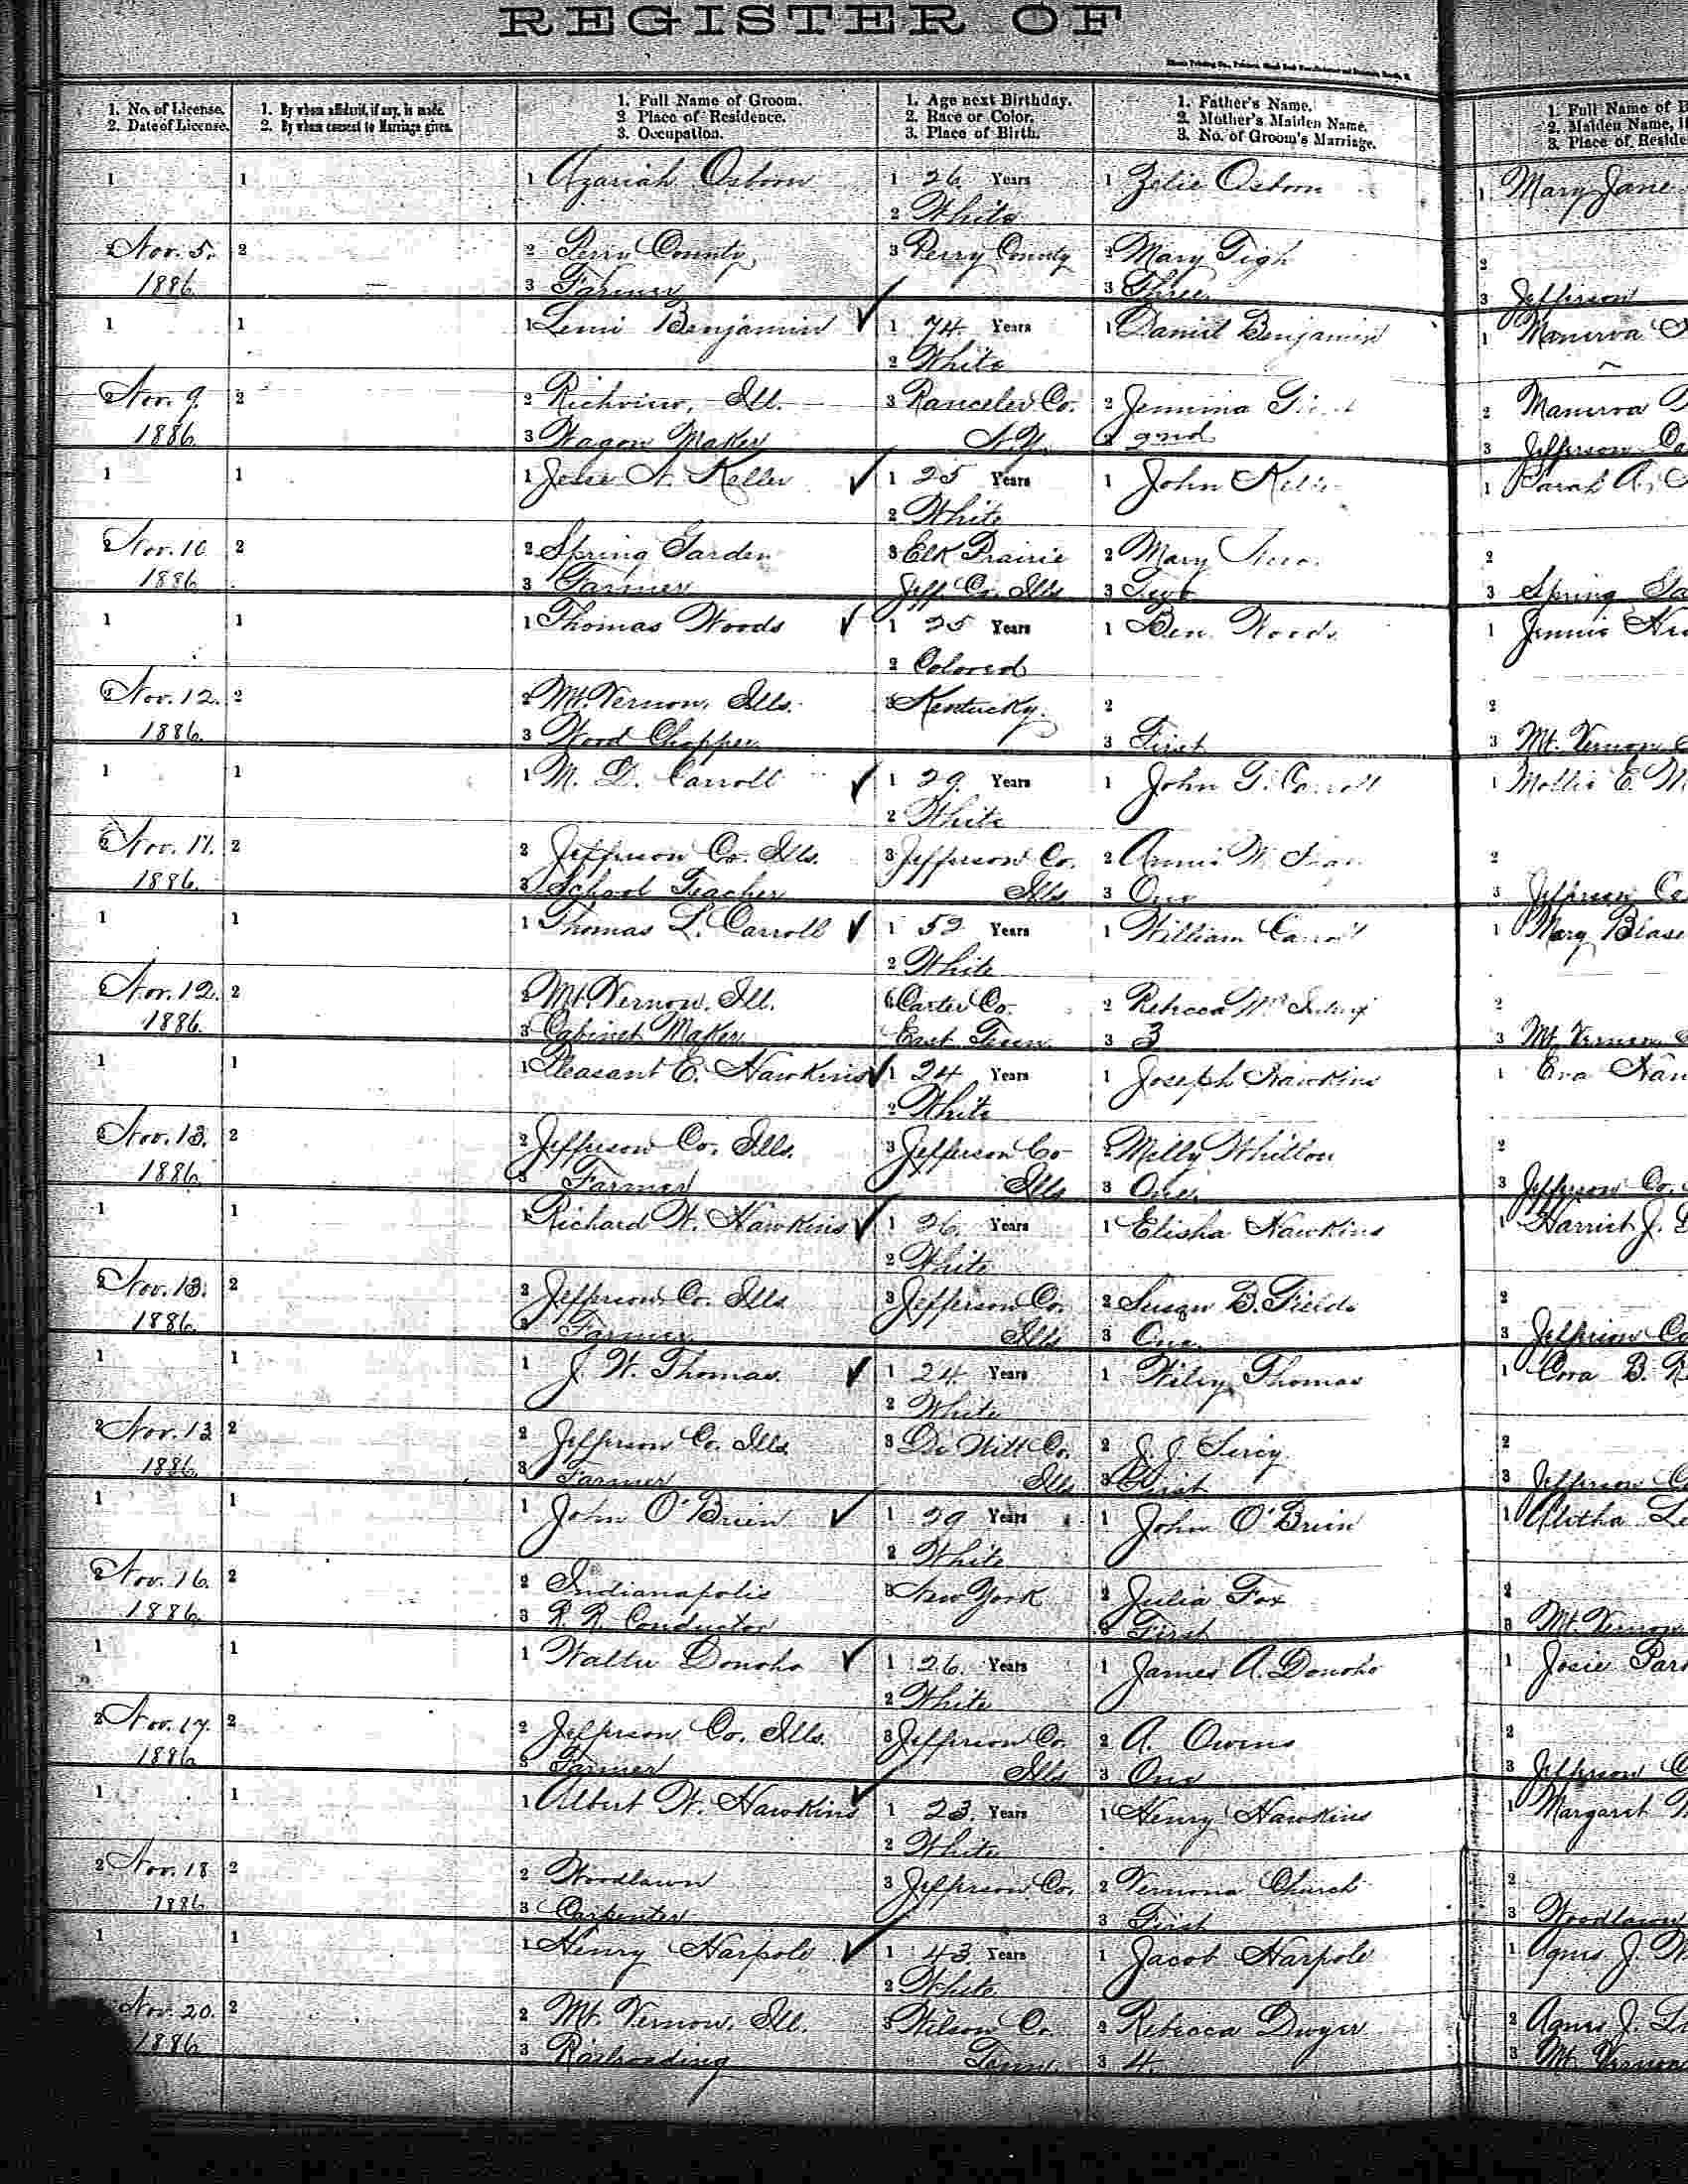 REGISTER OF
1. No. of License.
2. Date of License.
1. By whom affidavit, if any, is made.
2. By whom consent to Marriage given.
1. Full Name of Groom.
2. Place of Residence.
3. Occupation.
1. Age next Birthday.
2. Race or Color.
3. Place of Birth.
1. Father's Name.
2. Mother's Maiden Name.
3. No. of Groom's Marriage.
1. Full Name of B
2. Maiden Name, if
3. Place of Reside
1 1 1 Azariah Osborn 1 26 Years 1 Zelie Osborn 1 Mary Jane
2 White
2 Nov. 5. 2 2 Perry County 3 Perry County 2 Mary Tigh 2
1886 3 Farmer 3 Three 3 Jefferson
1 1 1 Benjamin 1 74 Years 1 Daniel Benjamin 1 Manerva
2 White
2 Nov. 9. 2 2 Richview, Ill. 3 Ranceler Co. 2 Jemima 2 Manerva
1886 3 Wagon Maker N.Y. 3 2nd 3 Jefferson
1 1 1 Keller 1 25 Years 1 John 1 Sarah A.
2 White
2 Nov. 10 2 2 Spring Garden 3 Elk Prairie 2 Mary 2
1886 3 Farmer Jeff Co. Ills 3 3 Spring Ga
1 1 1 Thomas Woods 1 25 Years 1 Ben Woods 1 Jennie
2 Colored
2 Nov. 12. 2 2 Mt. Vernon, Ills. 3 Kentucky. 2 2
1886. 3 Wood Chopper 3 First 3 Mt. Vernon
1 1 1 M. D. Carroll 1 29 Years 1 John T. Carroll 1 Mollie E. M
2 White
2 Nov. 17. 2 2 Jefferson Co. Ills. 3 Jefferson Co. 2 Annie W. 2
1886. 3 School Teacher Ills 3 One 3 Jefferson Co
1 1 1 Thomas L. Carroll 1 52 Years 1 William Carroll 1 Mary
2 White
2 Nov. 12. 2 2 Mt. Vernon, Ill. Carter Co. 2 Rebecca 2
1886. 3 Cabinet Maker East Tenn. 3 3 3 Mt. Vernon
1 1 1 Pleasant E. Hawkins 1 24 Years 1 Joseph Hawkins 1 Eva
2 White
2 Nov. 13. 2 2 Jefferson Co. Ills. 3 Jefferson Co 2 Milly 2
1886 3 Farmer Ills 3 One 3 Jefferson Co.
1 1 1 Richard W. Hawkins 1 26 Years 1 Elisha Hawkins 1 Harriet J.
2 White
2 Nov. 13. 2 2 Jefferson Co. Ills. 3 Jefferson Co. 2 Susan B. Fields 2
1886. 3 Farmer Ills 3 One 3 Jefferson Co
1 1 1 J. W. Thomas 1 24 Years 1 Wiley Thomas 1 Cora B. R
2 White
2 Nov. 13 2 2 Jefferson Co. Ills 3 De Witt Co. 2 2
1886 3 Farmer Ills 3 First 3 Jefferson C
1 1 1 John O'Brien 1 29 Years 1 John O'Brien 1 Alitha Le
2 White
2 Nov. 16. 2 2 Indianapolis 3 New York 2 Julia Fox 2
1886 3 R. R. Conductor 3 First 3 Mt. Vernon
1 1 1 Walter Donoho 1 26 Years 1 James A. Donoho 1 Josie Par
2 White
2 Nov. 17. 2 2 Jefferson Co. Ills. 3 Jefferson Co. 2 A. Owens 2
1886 3 Farmer Ills 3 One 3 Jefferson C
1 1 1 Albert W. Hawkins 1 23 Years 1 Henry Hawkins 1 Margaret
2 White
2 Nov. 18 2 2 Woodlawn 3 Jefferson Co. 2 Vernona Church 2
1886 3 Carpenter 3 First 3 Woodlawn
1 1 1 Henry Harpole 1 43 Years 1 Jacob Harpole 1 Agnes J. M
2 White
Nov. 20. 2 2 Mt. Vernon, Ill. 3 Wilson Co. 2 Rebecca Dwyer 2 Agnes J.
1886 3 Railroading Tenn 3 4. 3 Mt. Vernon